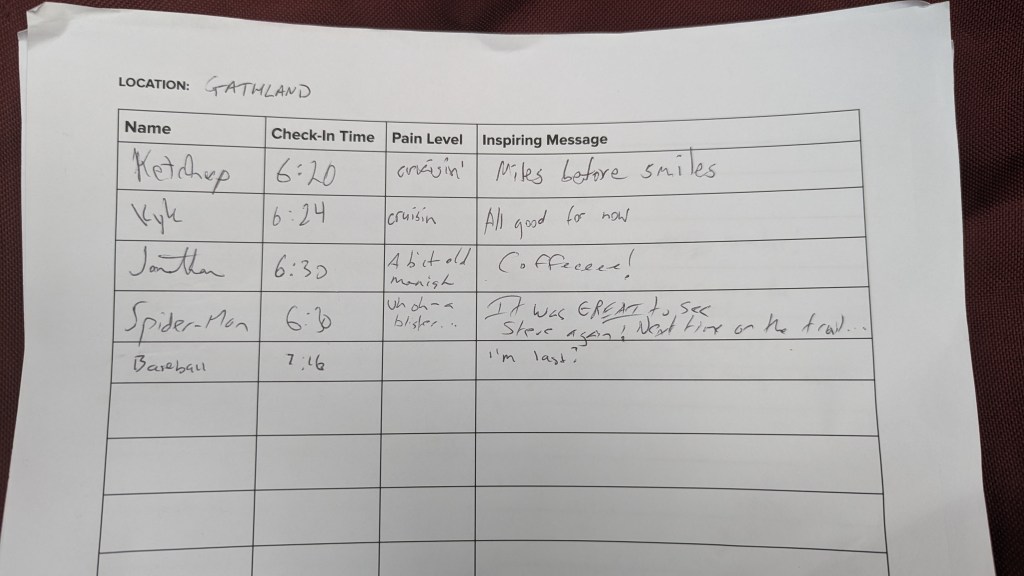 LOCATION: GATHLAND
Name Check-In Time Pain Level Inspiring Message
Ketchup 6:20 cruisin' Miles before smiles
Kyk 6:24 cruisin All good for now
Jonathan 6:30 A bit old Coffeeeee!
manish
Spider-Man 6:30 Uh oh-a It was GREAT to see
blister... Steve again! Next time on the trail...
Baseball 7:16 I'm last?